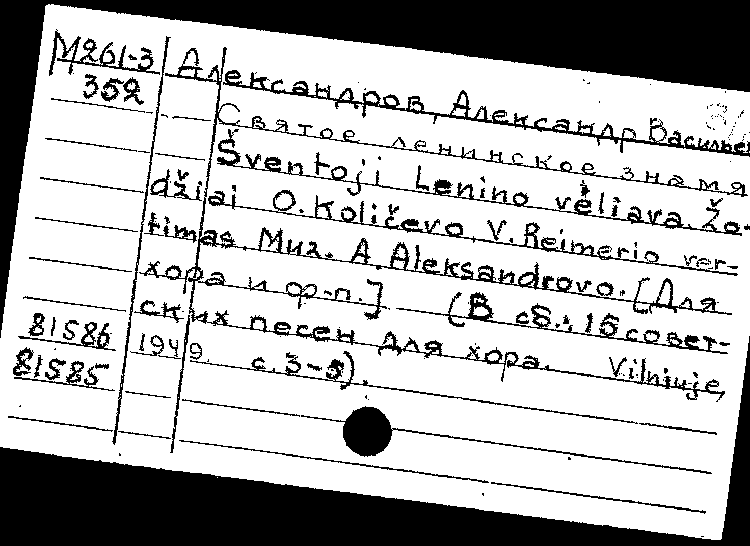 М261-3
352
Александров, Александр Василье
Святое ленинское знамя
Šventoji Lenino vėliava. Žo-
džiai O. Količevo, V. Reimerio ver-
timas. Muz. A. Aleksandrovo. [Для
хора и ф-п.] (В сб.: 15 совет-
ских песен для хора. Vilniuje,
1949 с. 3-5).
81586
81585